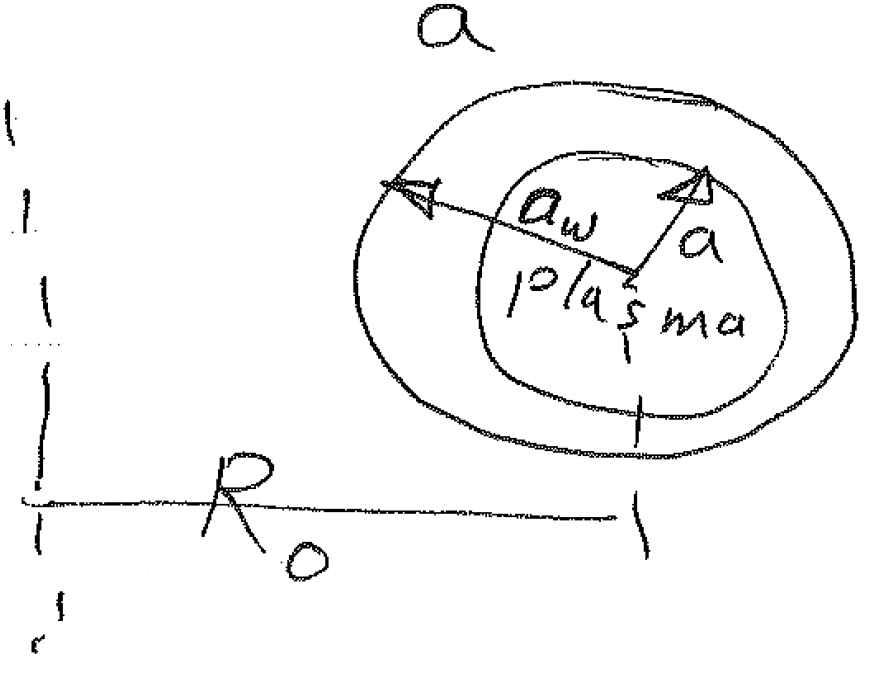 a
a_w
a
plasma
R_0